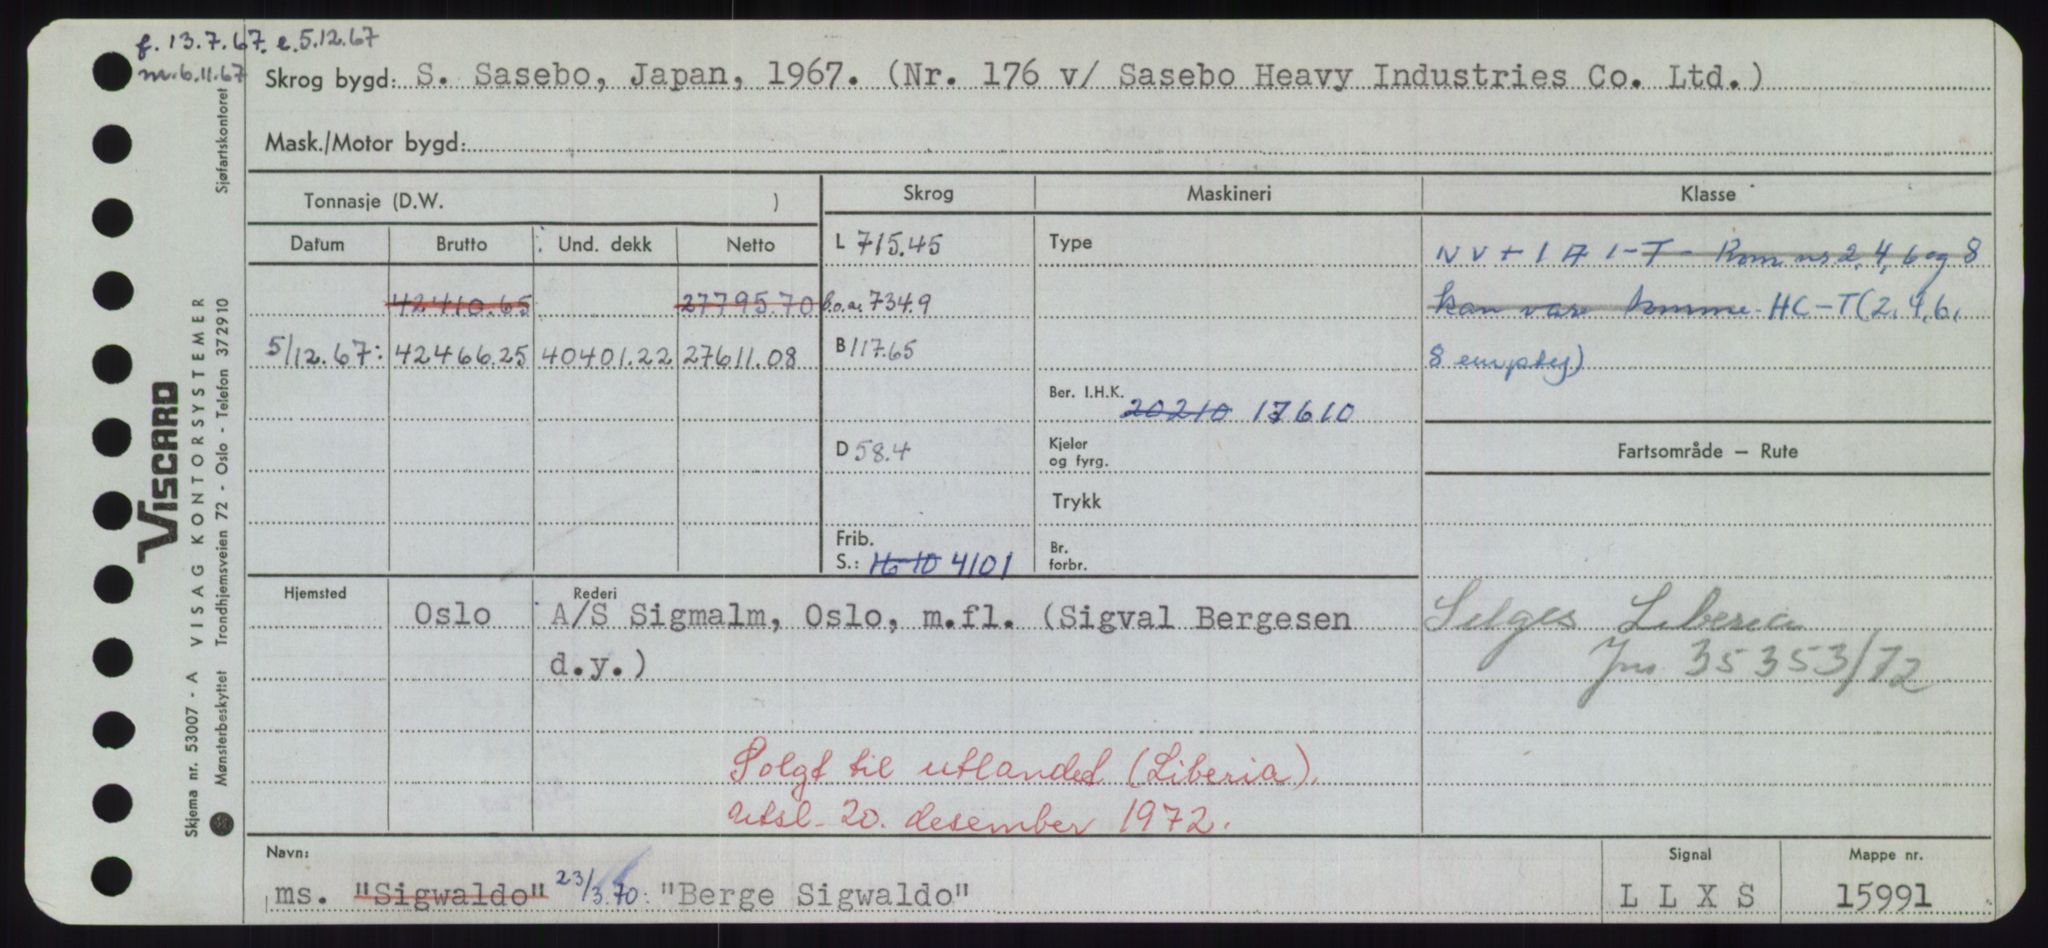 f. 13.7.67. e. 5.12.67
m. 6.11.67
Skrog bygd: S. Sasebo, Japan, 1967. (Nr. 176 v/ Sasebo Heavy Industries Co. Ltd.)
Mask./Motor bygd:
Tonnasje (D.W. )
Skrog
Maskineri
Klasse
Datum
Brutto
Und. dekk
Netto
L 715.45
Type
NV + 1 A 1 - T - Rom nr 2, 4, 6 og 8
42410.65 27795.70
b.o.a. 734.9
kan være tomme. HC-T(2, 4, 6,
5/12.67: 42466.25 40401.22 27611.08
B 117.65
8 empty)
Ber. I.H.K.
20210 17610
D 58.4
Kjeler
og fyrg.
Fartsområde – Rute
Trykk
Frib.
S.: 4101
Br.
forbr.
Hjemsted
Oslo
Rederi
A/S Sigmalm, Oslo, m.fl. (Sigval Bergesen
d.y.)
Selges Liberia
Jnr. 35353/72
Solgt til utlandet (Liberia).
Utsl. 20. desember 1972.
Navn:
ms. "Sigwaldo" 23/3.70: "Berge Sigwaldo"
Signal
L L X S
Mappe nr.
15991
Viscard
VISAG KONTORSYSTEMER
Skjema nr. 53007 - A
Mønsterbeskyttet
Trondhjemsveien 72 - Oslo - Telefon 372910
Sjøfartskontoret